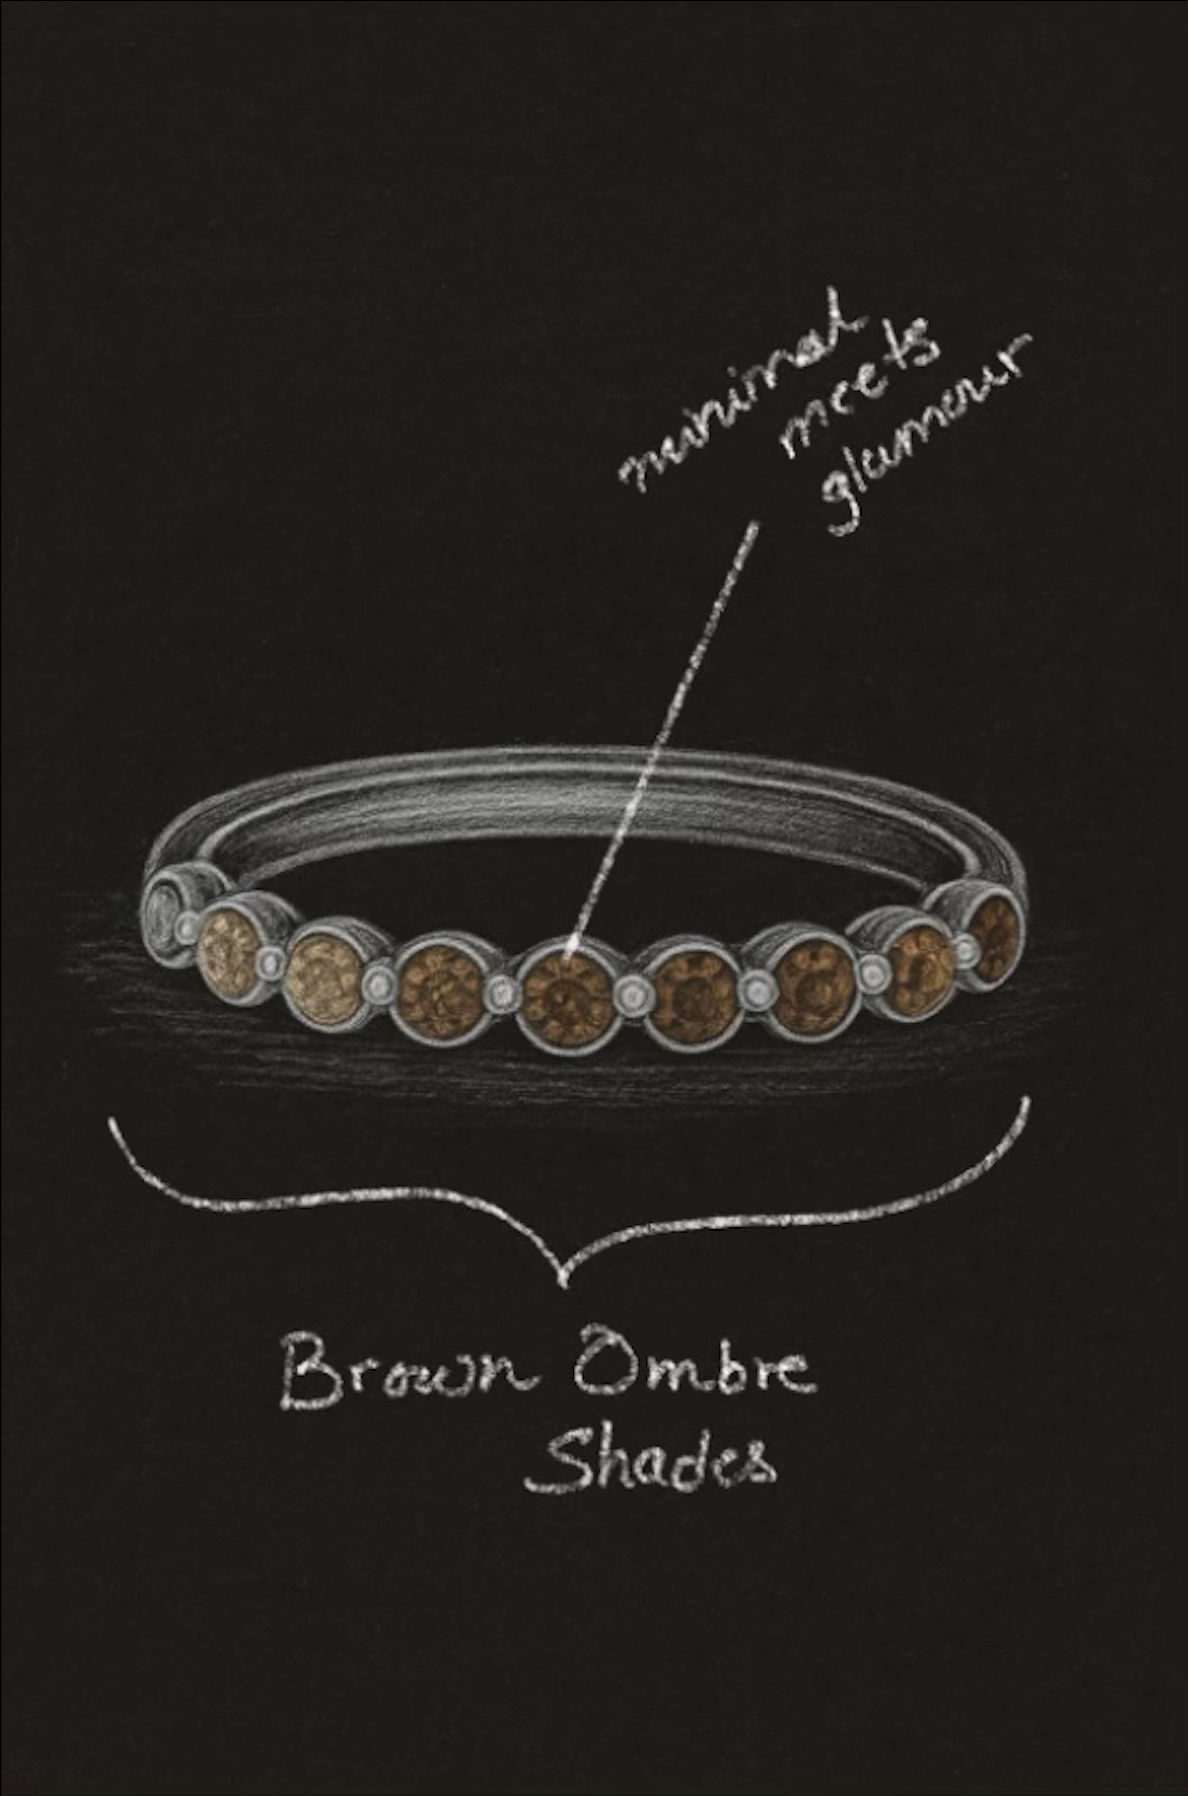 minimal
meets
glamour
Brown Ombre
Shades